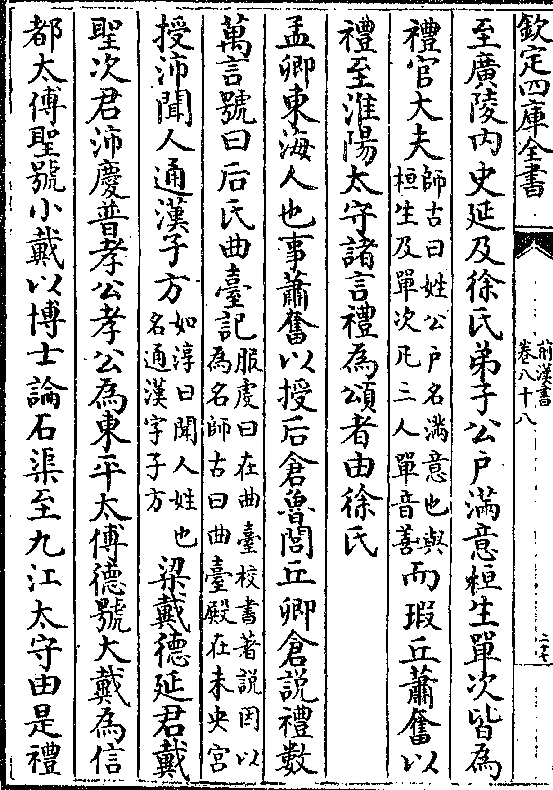 欽定四庫全書
前漢書
卷八十八
至廣陵內史延及徐氏弟子公戶滿意桓生單次皆為
禮官大夫師古曰姓公戶名滿意也與桓生及單次凡三人單音善而瑕丘蕭奮以
禮至淮陽太守諸言禮為頌者由徐氏
孟卿東海人也事蕭奮以授后倉魯閭丘卿倉說禮數
萬言號曰后氏曲臺記服虔曰在曲臺校書著說因以為名師古曰曲臺殿在未央宮
授沛聞人通漢子方如淳曰聞人姓也名通漢字子方梁戴德延君戴
聖次君沛慶普孝公孝公為東平太傅德號大戴為信
都太傅聖號小戴以博士論石渠至九江太守由是禮